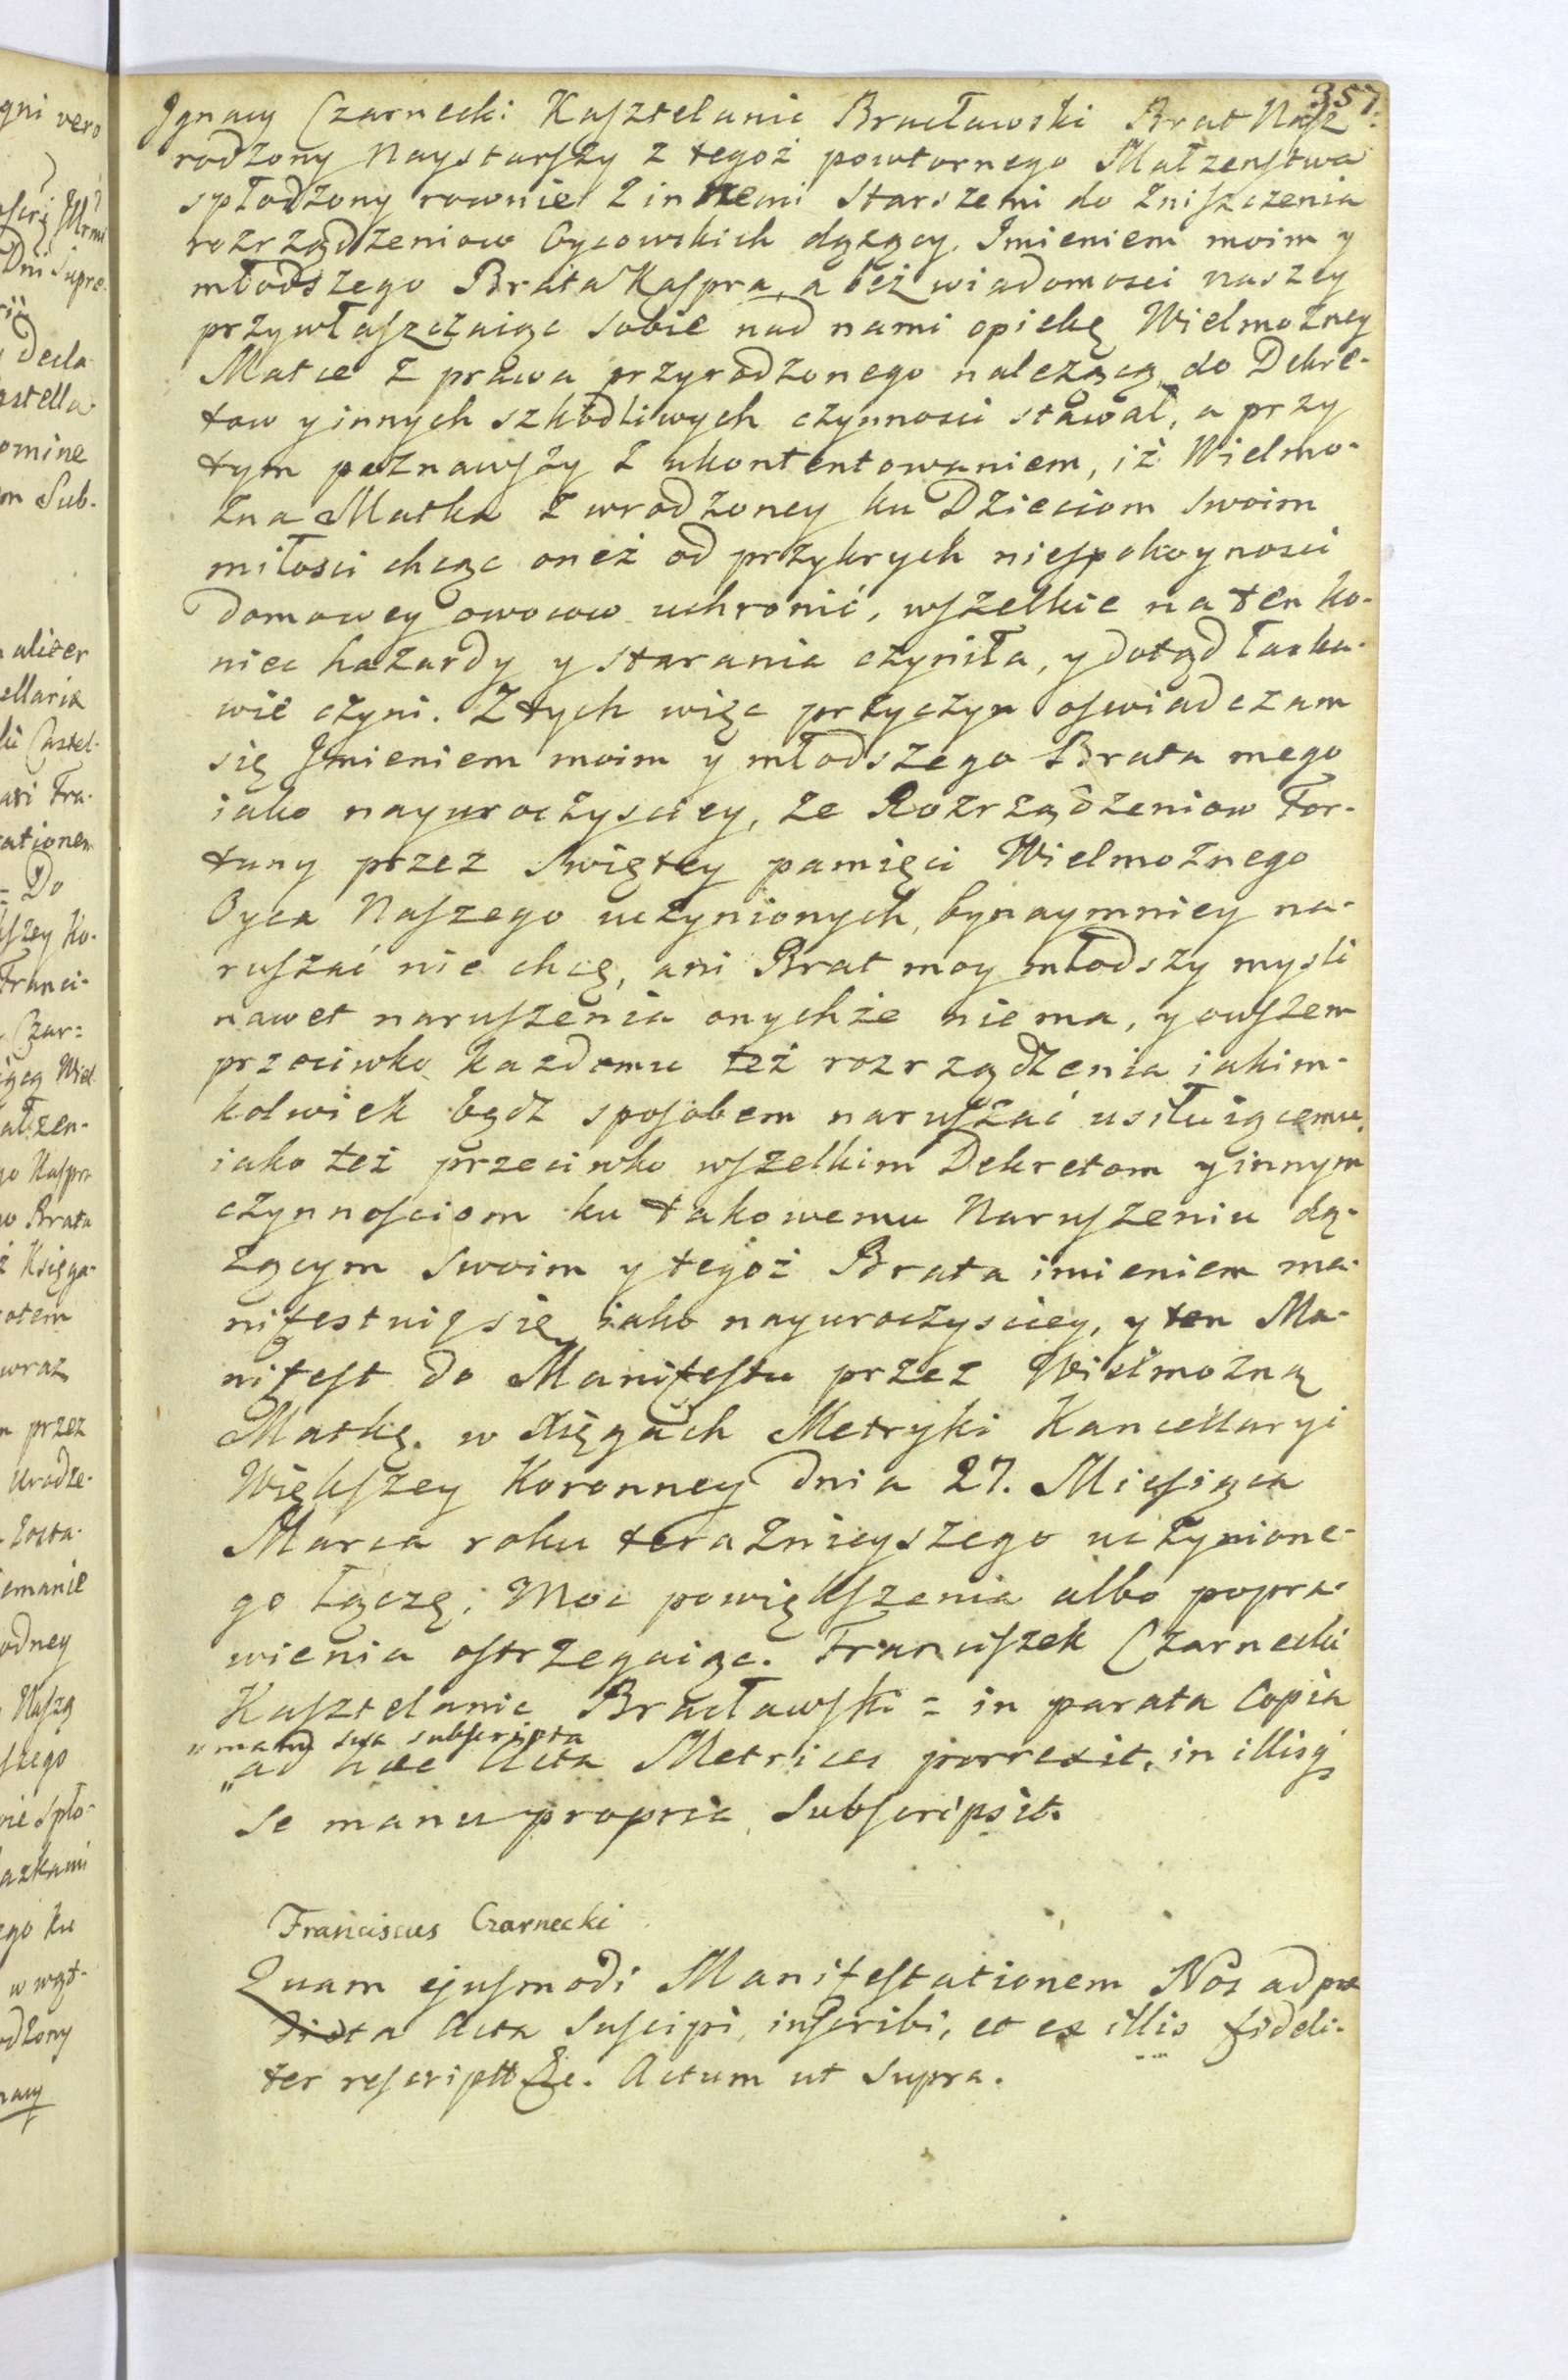 357.
Ignacy Czarnecki Kasztelanic Bracławski Brat Nasz
rodzony Naystarszy z tegoż powtornego Małzenstwa
spłodzony rownie z inszemi Starszemi do Zniszczenia
rozrządzeniow Oycowskich dązący, Imieniem moim y
młodszego Brata Kaspra, a bez wiadomosci naszey
przywłaszczaiąc sobie nad nami opiekę Wielmozney
Matce z prawa przyrodzonego nalezącą do Dekre-
tow y innych szkodliwych czynnosci stawał, a przy
tym poznawszy z ukontentowaniem, iż Wielmo-
zna Matka z wrodzoney ku Dzieciom swoim
miłosci chcąc oneż od przykrych niespokoynosci
domowey owocow uchronić, wszelkie na ten ko-
niec hazardy y starania czyniła, y dotąd łaska-
wie czyni. Z tych więc przyczyn oswiadczam
się Imieniem moim y młodszego Brata mego
iako nayuroczysciey, ze Rozrządzeniow For-
tuny przez Swiętey pamięci Wielmoznego
Oyca Naszego uczynionych, bynaymniey na-
ruszać nie chcę, ani Brat moy młodszy mysli
nawet naruszenia onychże nie ma, y owszem
przeciwko kazdemu też rozrządzenia iakim-
kolwiek bądz sposobem naruszać usiłuiącemu,
iako też przeciwko wszelkim Dekretom y innym
czynnosciom ku takowemu Naruszeniu dą-
zącym swoim y tegoż Brata imieniem ma-
nifestuię się iako nayuroczysciey, y ten Ma-
nifest do Manifestu przez Wielmozną
Matkę w Xięgach Metryki Kancellaryi
Większey Koronney dnia 27. Miesiąca
Marca roku teraznieyszego uczynione-
go łączę; Moc powiększenia albo popra-
wienia ostrzegaiąc. Franciszek Czarnecki
Kasztelanic Bracławski = in parata Copia
" manu sua subscripta
" ad hæc Acta Metrices porrexit, in illisq;
se manu propria Subscripsit.
Franciscus Czarnecki
Quam ejusmodi Manifestationem Nos ad præ
dicta Acta Suscipi, inscribi, et ex illis fideli-
ter rescriptt &c. Actum ut Supra.